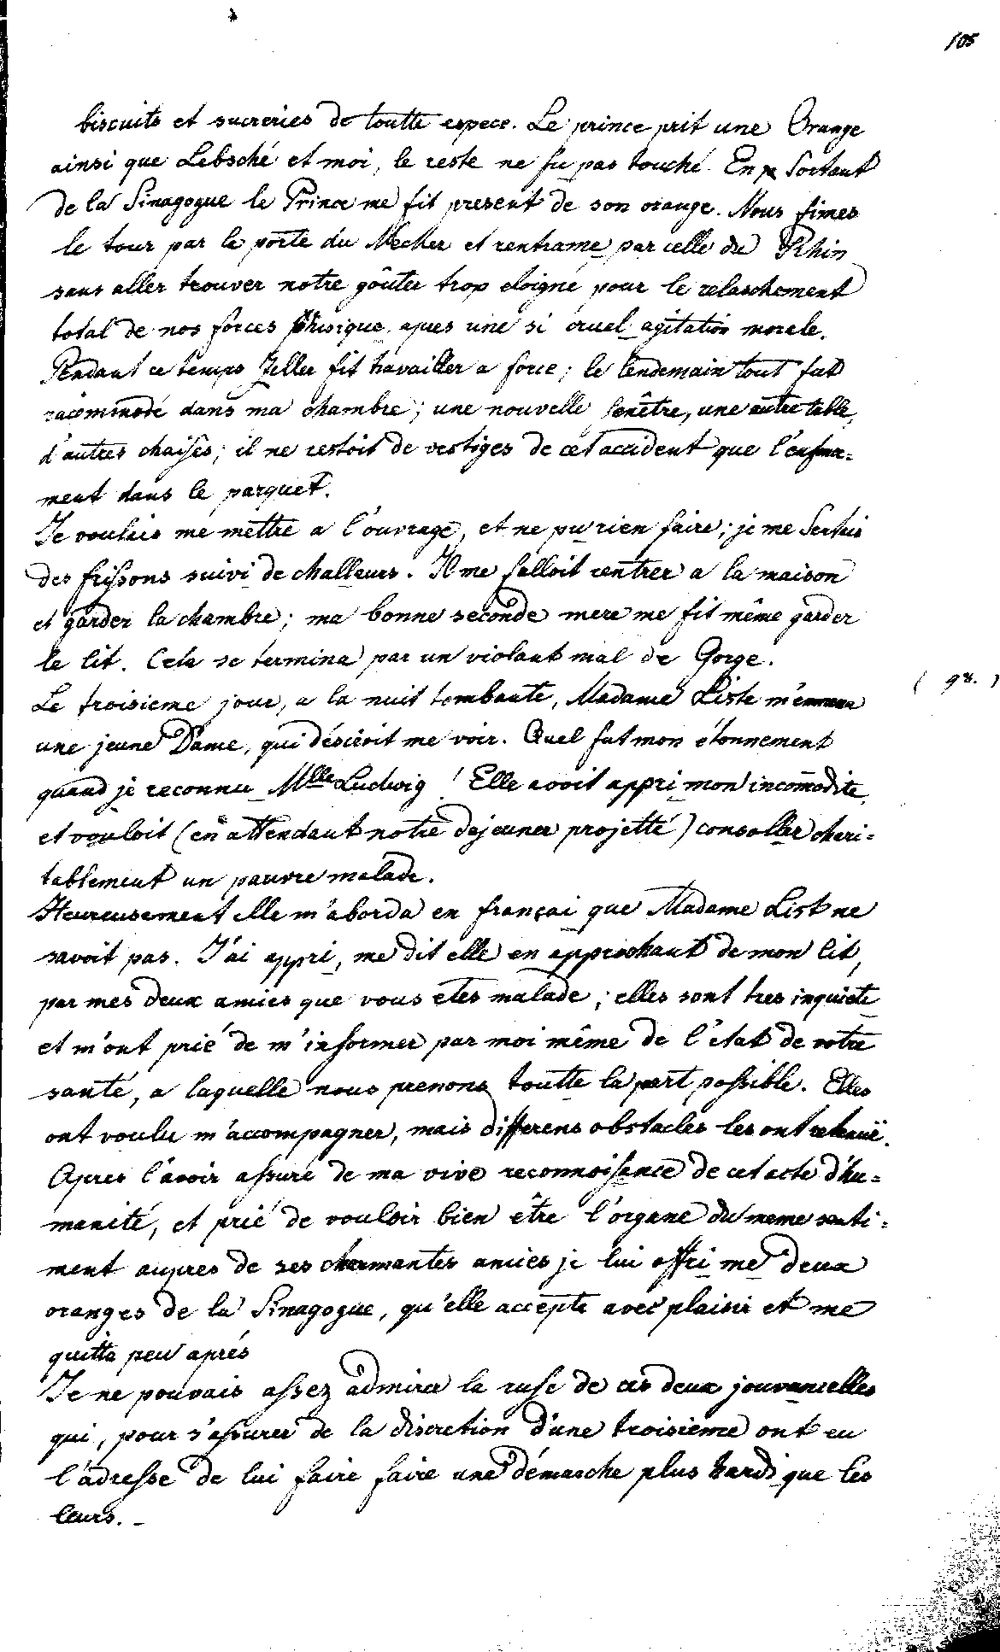 105
biscuits et sucreries de toutte espece. Le prince prit une Orange
ainsi que Lebsché et moi, le reste ne fu pas touché. En Sortant
de la Sinagogue le Prince me fit present de son orange. Nous fimes
le tour par la porte du Necker et rentrame par celle du Rhin
sans aller trouver notre goûter trop eloigné pour le relaschement
total de nos forces phisique, apres une si cruel agitation morale.
Pendant ce temps Zeller fit travailler a force; le lendemain tout fut
racommodé dans ma chambre; une nouvelle fenêtre, une autre table,
d'autres chaises; il ne restoit de vestiges de cet accident que l'enfon=
ment dans le parquet.
Je voulais me mettre a l'ouvrage, et ne pu rien faire; je me Sentais
des frissons suivi de challeurs. Il me falloit rentrer a la maison
et garder la chambre; ma bonne seconde mere me fit même garder
le lit. Cela se termina par un violant mal de Gorge.
( 98. )
Le troisieme jour, a la nuit tombante, Madame Liste m'emmena
une jeune Dame, qui désiroit me voir. Quel fut mon étonnement
quand je reconnu Mlle Ludwig! Elle avoit appri mon incomodite,
et vouloit (en attendant notre dejeuner projetté) consoller chari=
tablement un pauvre malade.
Heureusement elle m'aborda en françai que Madame List ne
savoit pas. J'ai appri, me dit elle en approchant de mon lit,
par mes deux amies que vous etes malade; elles sont tres inquiete
et m'ont prié de m'informer par moi même de l'état de votre
santé, a laquelle nous prenons toutte la part possible. Elles
ont voulu m'accompagner, mais differens obstacles les ont retenuë.
Apres l'avoir assuré de ma vive reconnoisance de cet acte d'hu=
manité, et prié de vouloir bien être l'organe du meme senti=
ment aupres de ses charmantes amies je lui offri me deux
oranges de la Sinagogue, qu'elle accepta avec plaisir et me
quitta peu aprés
Je ne pouvais assez admirer la ruse de ces deux jouvancelles
qui, pour s'assurer de la discretion d'une troisieme ont eu
l'adresse de lui faire faire une démarche plus hardi que les
leurs. -